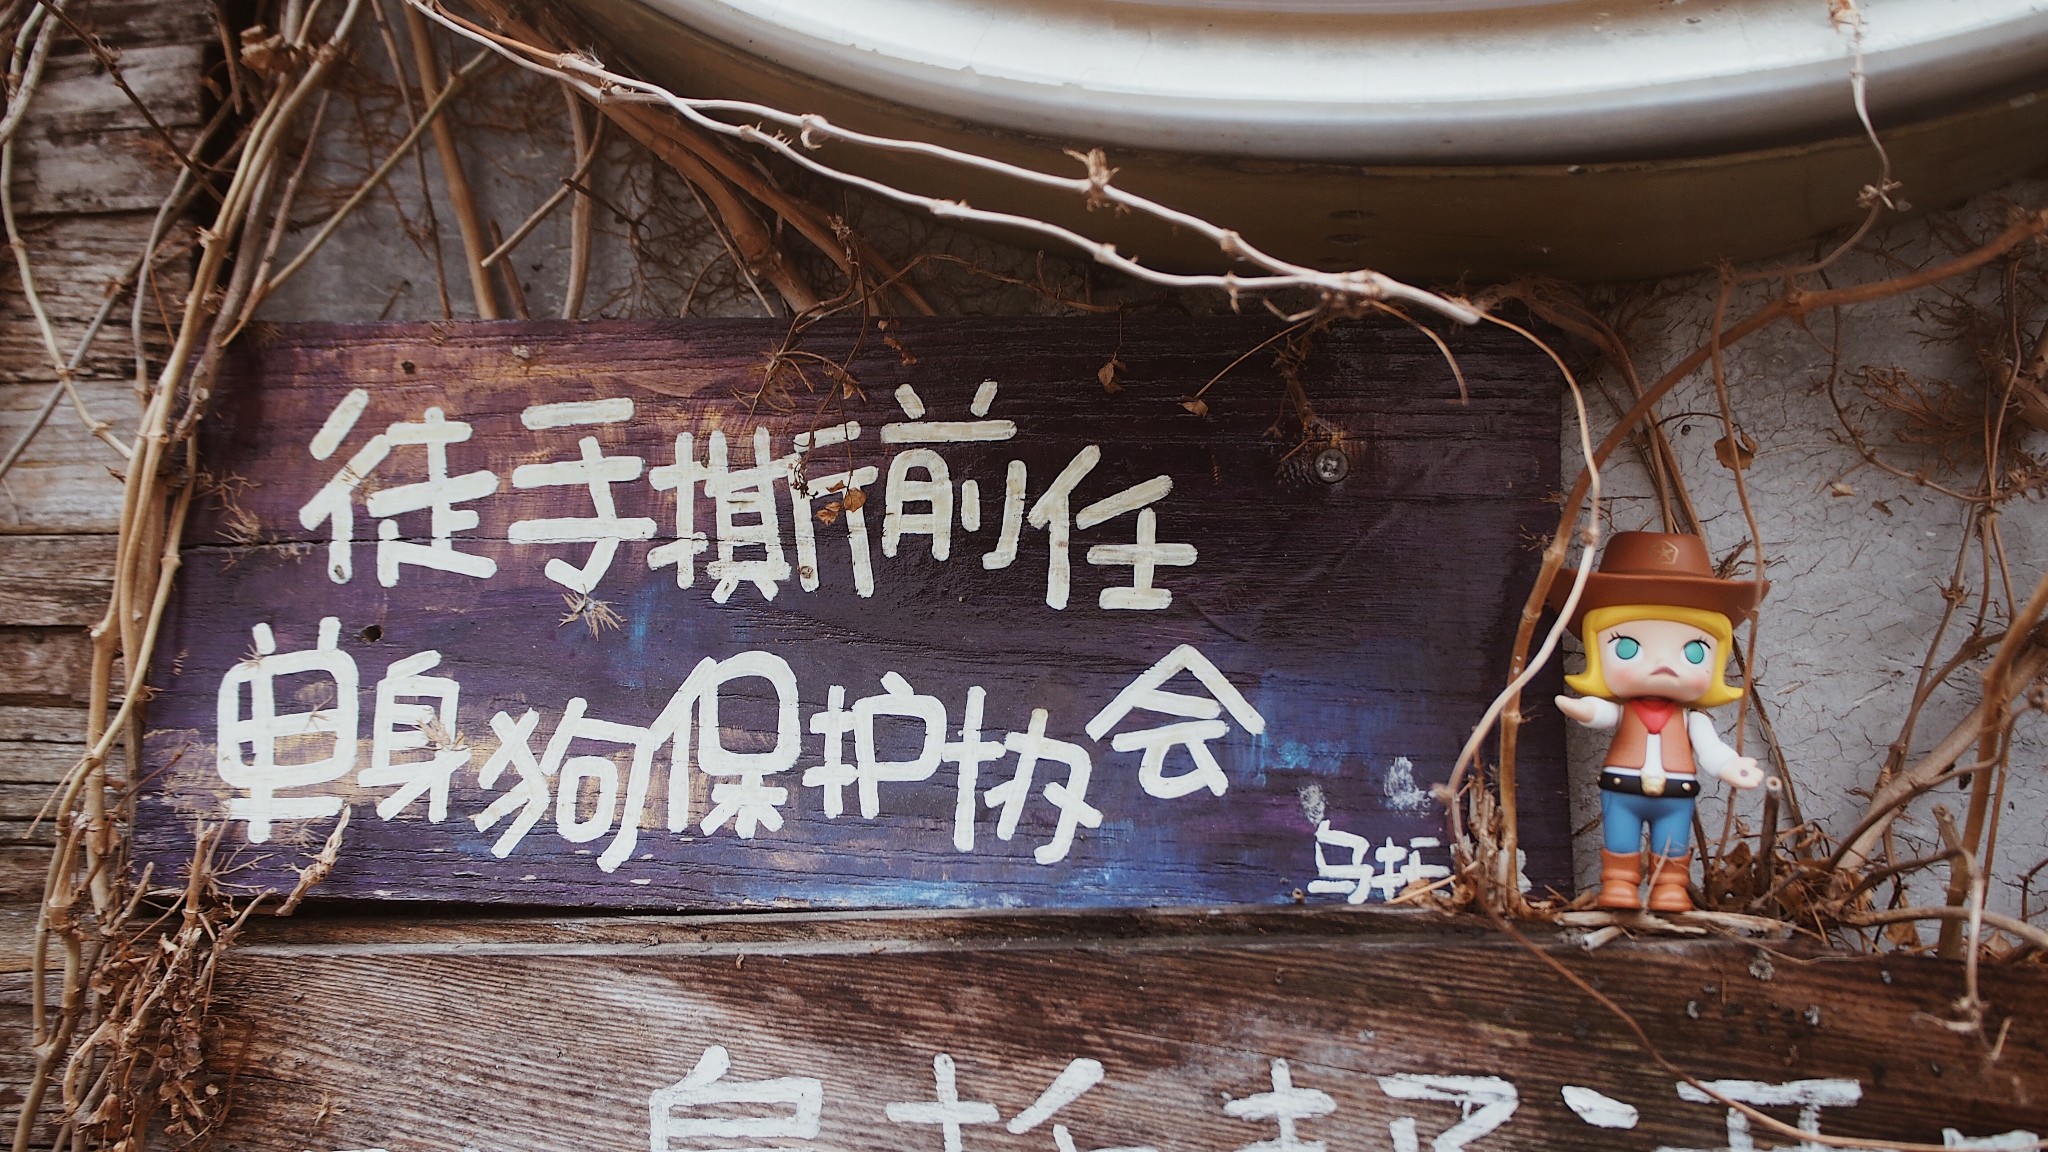 徒手撕前任
单身狗保护协会
乌托